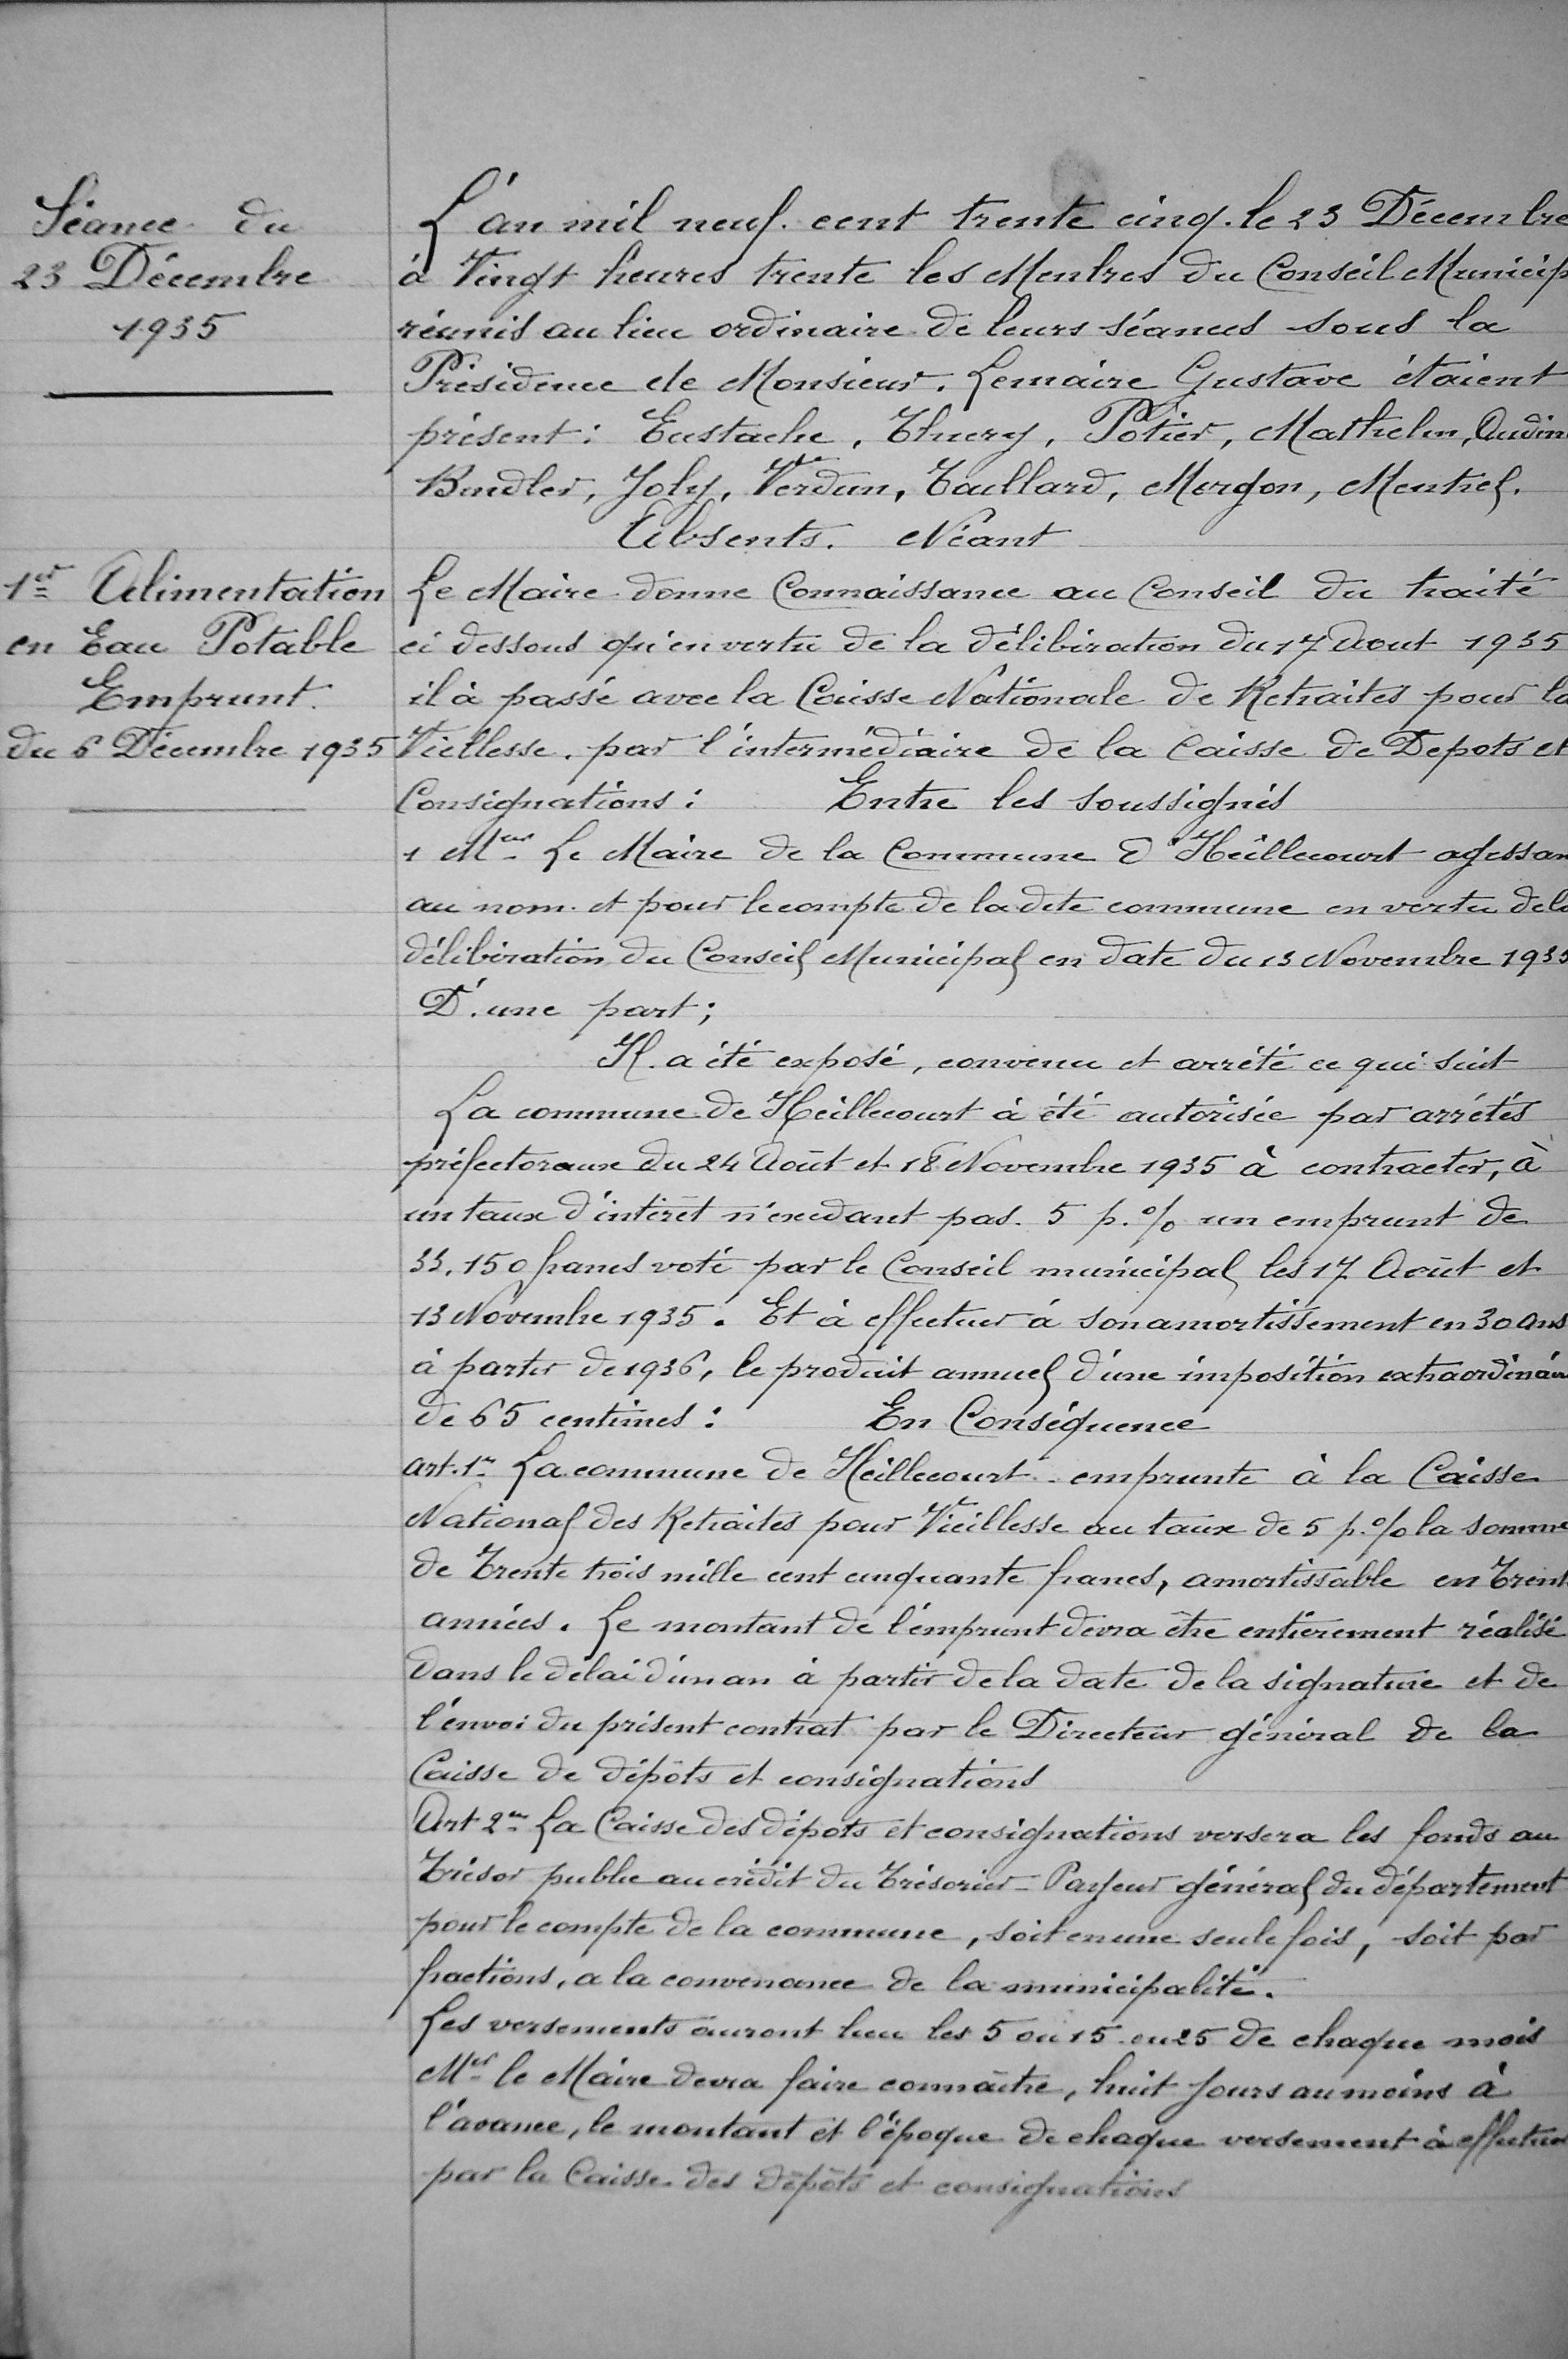 Séance du
23 Décembre
1935
L'an mil neuf. cent trente cinq. le 23 Décembre
à Vingt heures trente les Menbres du Conseil Municip
réunis au lieu ordinaire de leurs séances sous la
Présidence de Monsieur. Lemaire Gustave étaient
présent: Eustache, Thiery, Potier, Mathelin, Audin
Bindler, Joly, Verdun, Taillard, Morgon, Mentrel.
Absents. Néant
1er Alimentation
en Eau Potable
Emprunt.
du 6 Décembre 1935
Le Maire donne Connaissance au Conseil du traité
ci dessous qu'en vertu de la délibiration du 17 Aout 1935
il à passé avec la Caisse Nationale de Retraites pour la
Viellesse. par l'intermédiaire de la Caisse de Depots et
Consignations: Entre les soussignés
1 Mr Le Maire de la Commune d'Heillecourt agissan
au nom. et pour le compte de la dite commune en vertu de la
délibiration du Conseil Municipal en date du 13 Novembre 1935
D'une part;
Il a été exposé, convenu et arrété ce qui suit
La commune de Heillecourt à été autorisée par arrétés
préfectoraux du 24 Août et 18 Novembre 1935 à contracter, à
un taux d'intérêt n'exedant pas. 5 p.% un emprunt de
33.150 francs voté par le Conseil municipal les 17 Août et
13 Novembre 1935. Et à effectuer à son amortissement en 30 ans
à partir de 1936, le produit annuel d'une imposition extraordinair
de 65 centimes: En Conséquence
art. 1er La commune de Heillecourt emprunte à la Caisse
National des Retraites pour Vieillesse au taux de 5 p.% la somme
de Trente trois mille cent cinquante francs, amortissable en Trent
années. Le montant de l'emprunt devra être entièrement réalisé
dans le délai d'un an à partir de la date de la signature et de
l'envoi du présent contrat par le Directeur général de la
Caisse de dépôts et consignations
Art 2me La Caisse des dépots et consignations versera les fonds au
Trésor public au crédit du Trésorier-Payeur général du département
pour le compte de la commune, soit en une seule fois, soit par
fractions, a la convenance de la municipalité.
Les versements auront lieu les 5 ou 15 ou 25 de chaque mois
Mr le Maire devra faire connaître, huit jours au moins à
l'avance, le montant et l'époque de chaque versement à effectuer
par la Caisse des dépôts et consignations